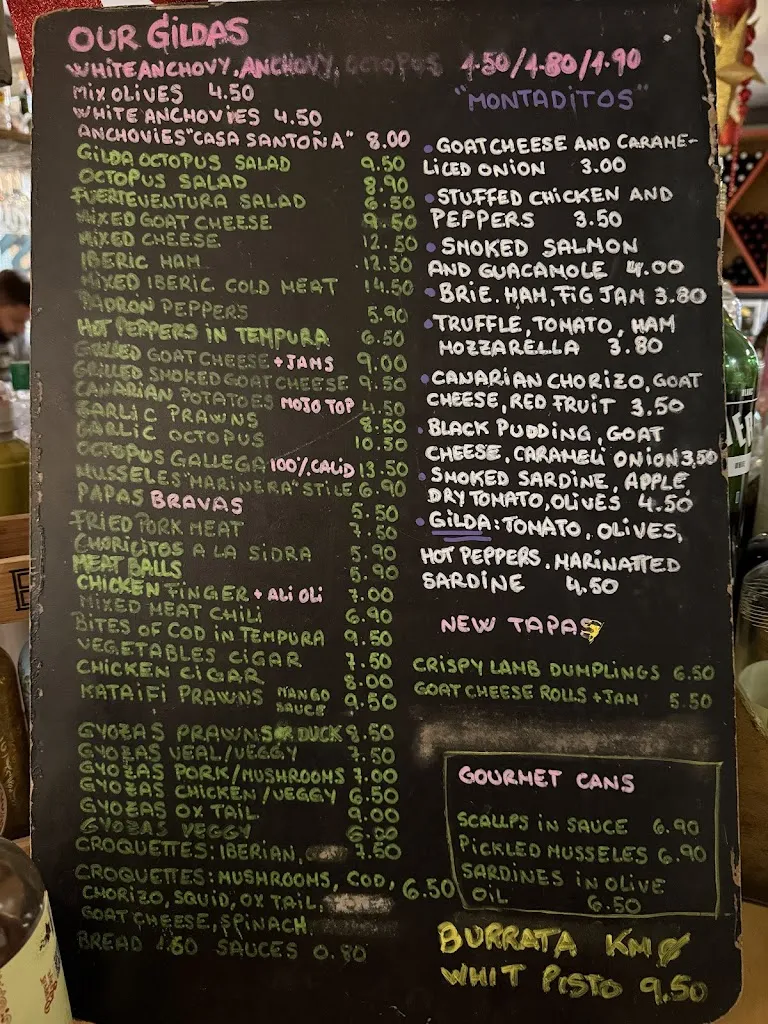 OUR GiLDAS
WHITE ANCHOVY, ANCHOVY, OCTOPUS 4.50/4.80/4.90
Mix OLIVES 4.50
WHITE ANCHOVIES 4.50
ANCHOVIES "CASA SANTOÑA" 8.00
GILDA OCTOPUS SALAD 9.50
OCTOPUS SALAD 8.90
FUERTEVENTURA SALAD 6.50
MIXED GOAT CHEESE 9.50
MIXED CHEESE 12.50
IBERIC HAM 12.50
MIXED IBERIC COLD MEAT 14.50
PADRON PEPPERS 5.90
HOT PEPPERS IN TEMPURA 6.50
GRILLED GOAT CHEESE + JAMS 9.00
GRILLED SMOKED GOAT CHEESE 9.50
CANARIAN POTATOES MOJO TOP 4.50
GARLIC PRAWNS 8.50
GARLIC OCTOPUS 10.50
OCTOPUS GALLEGA 100% CALID 13.50
MUSSELES "MARINERA" STILE 6.90
PAPAS BRAVAS 5.50
FRIED PORK MEAT 7.50
CHORICITOS A LA SIDRA 5.90
MEAT BALLS 5.90
CHICKEN FINGER + ALI OLI 7.00
MIXED MEAT CHILI 6.90
BITES OF COD IN TEMPURA 9.50
VEGETABLES CIGAR 7.50
CHICKEN CIGAR 8.00
KATAIFI PRAWNS MANGO SAUCE 9.50
GYOZAS PRAWNS OR DUCK 8.50
GYOZAS VEAL/VEGGY 7.50
GYOZAS PORK/MUSHROOMS 7.00
GYOZAS CHICKEN/VEGGY 6.50
GYOZAS OX TAIL 9.00
GYOZAS VEGGY 6.00
CROQUETTES: IBERIAN, 7.50
CROQUETTES: MUSHROOMS, COD, 6.50
CHORIZO, SQUID, OX TAIL,
GOAT CHEESE, SPINACH
BREAD 1.60 SAUCES 0.80
"MONTADITOS"
• GOAT CHEESE AND CARAME-
LICED ONION 3.00
• STUFFED CHICKEN AND
PEPPERS 3.50
• SMOKED SALMON
AND GUACAMOLE 4.00
• BRIE. HAM, FIG JAM 3.80
• TRUFFLE, TOMATO, HAM
MOZZARELLA 3.80
• CANARIAN CHORIZO, GOAT
CHEESE, RED FRUIT 3.50
• BLACK PUDDING, GOAT
CHEESE, CARAMELI ONION 3,50
• SMOKED SARDINE, APPLE
DRY TOMATO, OLIVES 4.50
• GILDA: TOMATO, OLIVES,
HOT PEPPERS. MARINATTED
SARDINE 4.50
NEW TAPAS
CRISPY LAMB DUMPLINGS 6.50
GOAT CHEESE ROLLS + JAM 5.50
GOURMET CANS
SCALLPS IN SAUCE 6.90
PICKLED MUSSELES 6.90
SARDINES IN OLIVE
OIL 6.50
BURRATA KM Ø
WHIT PISTO 9.50